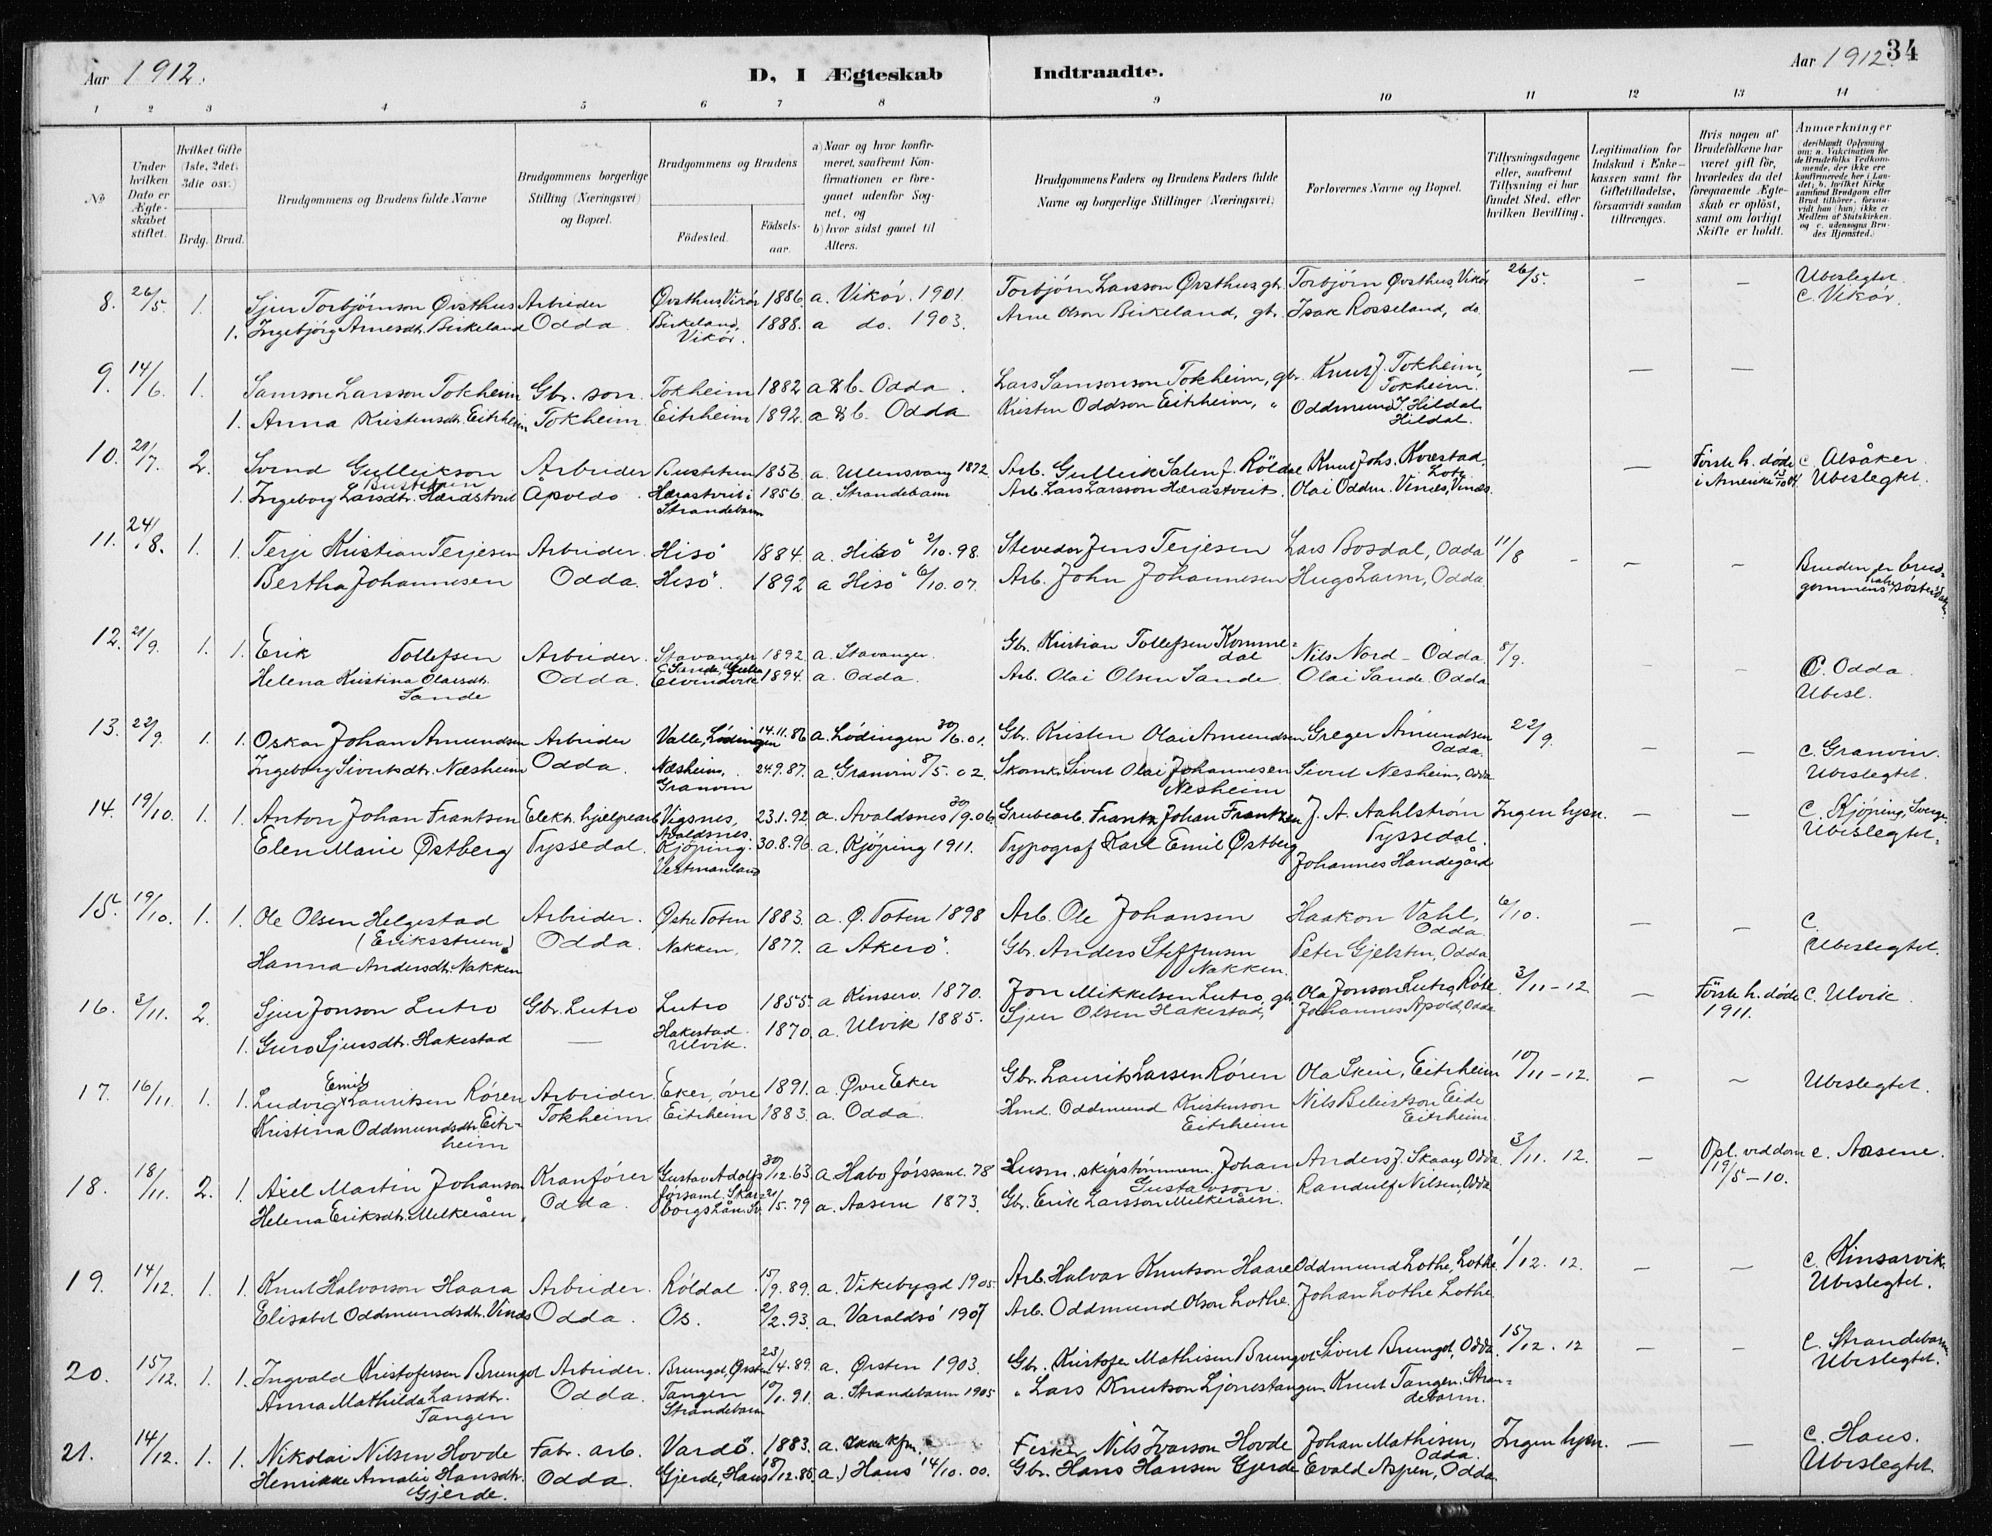 34
Aar 1912.
D, I Ægteskab Indtraadte.
Aar 1912.
1 2 3 4 5 6 7 8 9 10 11 12 13 14
№
Under hvilken Dato er Ægteskabet stiftet.
Hvilket Gifte (1ste, 2det, 3die osv.)
Brdg. Brud.
Brudgommens og Brudens fulde Navne
Brudgommens borgerlige Stilling (Næringsvei) og Bopæl.
Brudgommens og Brudens
Fødested. Fødselsaar.
a) Naar og hvor konfirmeret, saafremt Konfirmationen er foregaaet udenfor Sognet, og
b) hvor sidst gaaet til Alters.
Brudgommens Faders og Brudens Faders fulde Navne og borgerlige Stillinger (Næringsvei)
Forlovernes Navne og Bopæl.
Tillysningsdagene eller, saafremt Tillysning ei har fundet Sted, efter hvilken Bevilling.
Legitimation for Indskud i Enkekassen samt for Giftetilladelse, forsaavidt saadan tiltrænges.
Hvis nogen af Brudefolkene har været gift før, hvorledes da det foregaaende Ægteskab er opløst, samt om lovligt Skifte er holdt.
Anmærkninger (deriblandt Oplysning om: a. Vakcination for de Brudefolks Vedkommende, der ikke ere konfirmerede her i Landet; b. hvilket Kirkesamfund Brudgom eller Brud tilhører, forsaavidt han (hun) ikke er Medlem af Statskirken. og c. udensogns Brudes Hjemsted.)
8. 26/5. 1. Sjur Torbjørnson Øvsthus Arbeider Øvsthus Vikør 1886 a. Vikør. 1901. Torbjørn Larsson Øvsthus, gb. Torbjørn Øvsthus, Vikør 26/5. — — Ubeslegtet
1. Ingebjørg Arnesdtr. Birkeland Odda. Birkeland, Vikør. 1888. a do. 1903. Arne Olson Birkeland, gb. Isak Rosseland, do c. Vikør.
9. 14/6. 1. Samson Larsson Tokheim Gbr. søn Tokheim 1882 a & b. Odda. Lars Samsonson Tokheim, gb. Knut J. Tokheim, Tokheim. — —
1. Anna Kristensdtr. Eitrheim Tokheim Eitrheim 1892 a & b. Odda Kristen Oddson Eitrheim, " Oddmund J. Hildal Hildal.
10. 21/7. 2. Svend Gulleikson Busteteen Arbeider Busteteen 1856 a. Ullensvang 1872 Arb. Gulleik Salen f. Röldal Knut Johs. Kvæstad, Lote — Første h. døde i Amerika c Alsåker
1. Ingeborg Larsdtr. Hærastveit Apoldo. Hærastveit i Strandebarm 1856 a. Strandebarm Arb. Lars Larsson Hærastveit. Olai Oddm. Vinæs, Vinæs. Ubeslegtet.
11. 24/8. 1. 1. Terje Kristian Terjesen Arbeider. Hisö 1884. a. Hisö 2/10. 98. Stevedor Jens Terjesen Lars Bosdal, Odda 11/8 — —
Bertha Johannesen Odda. Hisö. 1892 a Hisö 6/10. 07. Arb. John Johannesen Hugo Larm, Odda Bruden er brudgommens halvsøsters
12. 21/9. 1. 1. Erik Tollefsen Arbeider. Stavanger 1892 a. Stavanger. Gb. Kristian Tollefsen Kommedal Nils Nord - Odda. 8/9.
Helena Kristina Olaisdtr. Sande Odda. Eivindvik 1894. a. Odda. Arb. Olai Olsen Sande Olai Sande. Odda C. Odda. Ubesl.
13. 22/9. 1. 1. Oskar Johan Amundsen Arbeider Valle, Lødingen 14.11.86 a. Lødingen 30/6. 01. Gb. Kristen Olai Amundsen Greger Amundsen Odda. 22/9. — —
Ingeborg Sivertsdtr. Næsheim Odda. Næsheim, Granvin 24.9.87. a. Granvin 8/5. 02. Skomk. Sivert Olai Johannesen Nesheim Sivert Nesheim, Odda c. Granvin. Ubeslegtet.
14. 19/10. 1. 1. Anton Johan Frantsen Elektr. hjelpearb Vigsnes, Avaldsnes. 23.1.92. a. Avaldsnes 30/9. 06. Grubearb. Frantz Johan Frantzen J. A. Aahlstrøm Tyssedal. Ingen lysn. — — C. Kjöping, Sverge
Elen Marie Østberg Tyssedal. Kjöping. Vestmanland 30.8.96. a. Kjöping 1911. Typograf Karl Emil Østberg Johannes Handegård Ubeslegtet.
15. 19/10. 1. 1. Ole Olsen Helgestad (Erikssteen) Arbeider. Østre Toten 1883. a. Ø. Toten 1898 Arb. Ole Johansen Haakon Vahl, Odda. 6/10. — — C.
Hanna Andersdtr. Nakken Odda. Nakken. 1877. a Akerö. Gb. Anders Steffensen Nakken. Peter Gjelsten, Odda Ubeslegtet.
16. 3/11. 2. Sjur Jonson Lutro Gb. Lutro Lutro 1855. a Kinserv. 1870. Jon Mikkelsen Lutro, gb. Ola Jonson Lutro, Røte 3/11 - 12. — Første h. døde 1911. c. Ulvik
1. Guro Sjursdtr. Hakestad — Hakestad. Ulvik. 1870. a. Ulvik 1885. Sjur Olsen Hakestad, Johannes Apold, Odda
17. 16/11. 1. 1. Ludvig Emil Lauritsen Røren Arbeider. Eker, övre 1891. a. Øvre Eker Gbr. Laurits Larsen Røren Ola Skeie, Eitrheim 10/11 - 12. — — Ubeslegtet.
Kristina Oddmundsdtr. Eitrheim Tokheim. Eitrheim 1883. a. Odda. Hmd. Oddmund Kristenson Eitrheim Nils Eide Eitrheim
18. 18/11. 2. 1. Axel Martin Johanson Kranfører Gustav Adolfs forsaml. Skaraborgs Län. Sv. 30/12. 63. a. Habo förssaml. 78 Husm. skipstømmerm. Johan Gustavson Anders J. Skaar, Odda 3/11. 12. — Opl. ved dom 19/5 - 10. c. Aasene.
Helena Eriksdtr. Melkeråen, Odda. 21/5. 79 a. Aasene 1873. Gb. Erik Larsson Melkeråen. Randulf Nilsen, Odda
19. 14/12. 1. 1. Knut Halvorson Haara Arbeider. Röldal 15/9. 89. a. Vikebygd 1905 Arb. Halvar Knutson Haare Oddmund Lothe, Lothe 1/12. 12. — — c. Kinsarvik
Elisabet Oddmundsdtr. Vinæs Odda. Os. 2/2. 93. a. Varaldsö 1907 Arb. Oddmund Olson Lothe. Johan Lothe Lothe Ubeslegtet.
20. 15/12. 1. 1. Ingvald Kristofersen Brungot Arbeider. Brungot, Ørsten 23/4. 89. a. Ørsten 1903. Gb. Kristofer Mathisen Brungot Sivert Brungot, Odda 15/12. 12 — — C. Strandebarm
Anna Mathilda Larsdtr. Tangen Odda. Tangen Strandebarm 91. a. Strandebarm 1905 " Lars Knutson Ljonestangen. Knut Tangen. Strandebarm. Ubeslegtet.
21. 14/12. 1. 1. Nikolai Nilsen Hovde Fabr. arb. Vardö. 1883. a. Ikke kfm. Fisker Nils Ivarson Hovde Johan Mathisen, Odda. Ingen lysn. — — C. Haus.
Henrikke Amalie Hansdtr. Gjerde. Odda. Gjerde, Haus 18/12. 85. a.) Haus 14/10. 00. Gb. Hans Hansen Gjerde Evald Aspen, Odda. Ubeslegtet.